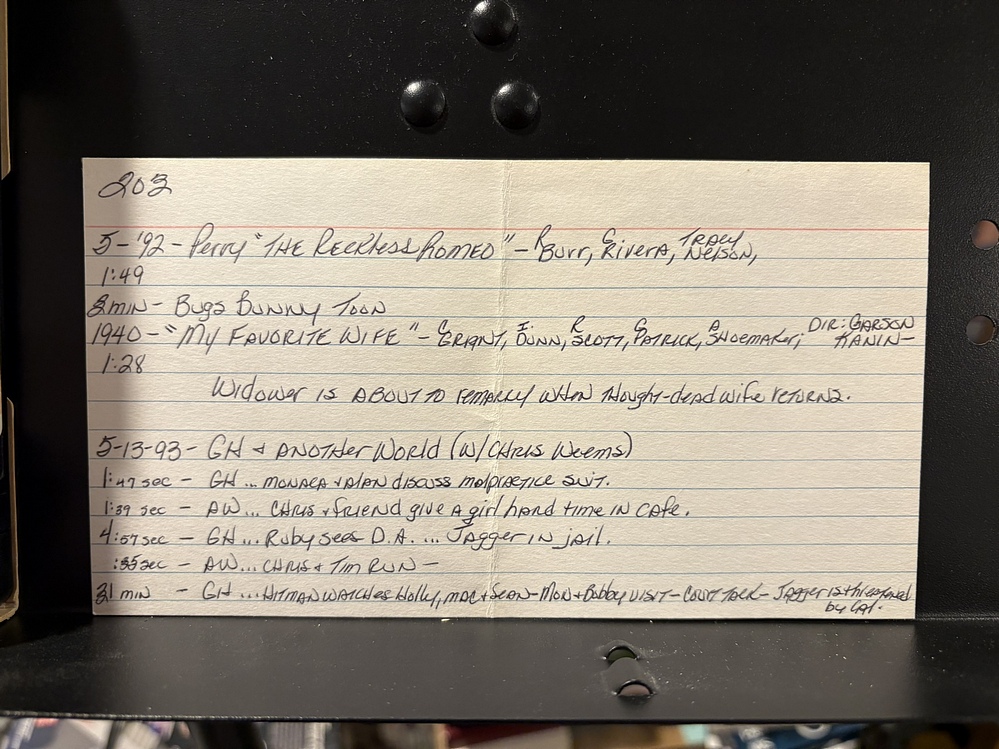 203
5-'92 - Perry "THE RECKLESS ROMEO" - R Burr, C Rivera, TRACY Nelson,
1:49
8 min - Bugs Bunny Toon
1940 - "My FAVORITE WIFE" - C GRANT, I. DUNN, R SCOTT, G PATRICK, A SHOEMAKER, DIR: GARSON KANIN -
1:28
Widower is about to remarry when thought-dead wife returns.
5-13-93 - GH & ANOTHER World (W/ CHRIS Weems)
1:47 sec - GH ... MONACA & ALAN discuss malpractice suit.
1:39 sec - AW ... CHRIS & friend give A girl hard time IN CAFE.
4:57 sec - GH ... Ruby sees D.A. ... JAGGER IN jail.
:35 sec - AW ... CHRIS & Tim RUN -
31 min - GH ... HITMAN WATCHES Holly, MAC & SEAN - MON & Bobby VISIT - COURT TALK - JAGGER is threatened by CAL.